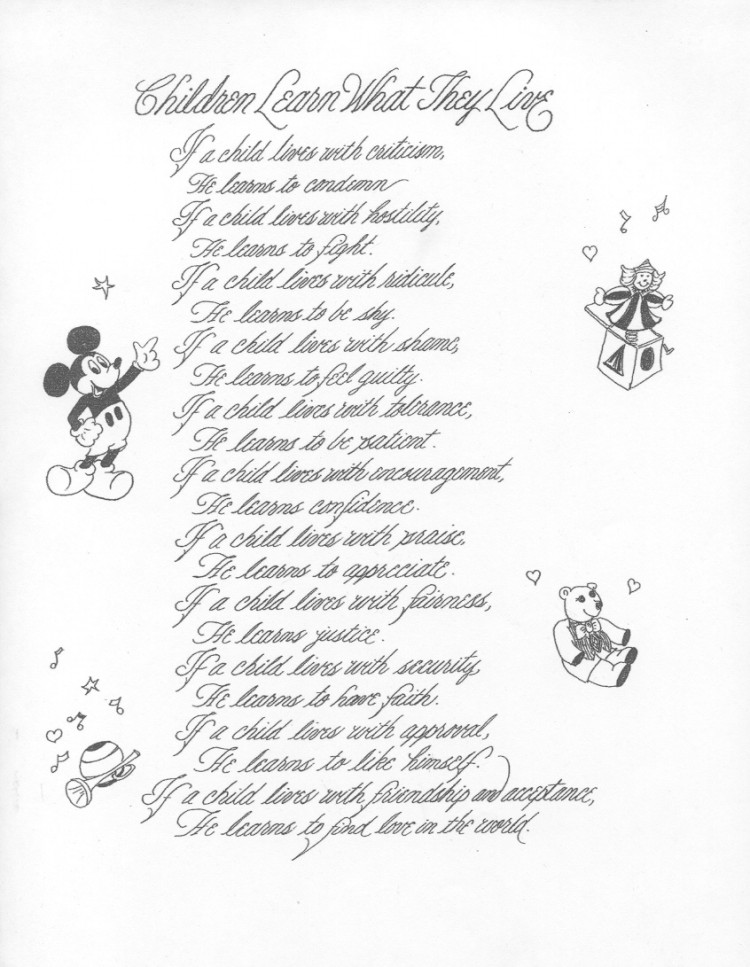 Children Learn What They Live
If a child lives with criticism,
He learns to condemn
If a child lives with hostility,
He learns to fight.
If a child lives with ridicule,
He learns to be shy.
If a child lives with shame,
He learns to feel guilty.
If a child lives with tolerance,
He learns to be patient.
If a child lives with encouragement,
He learns confidence.
If a child lives with praise,
He learns to appreciate.
If a child lives with fairness,
He learns justice.
If a child lives with security,
He learns to have faith.
If a child lives with approval,
He learns to like himself.
If a child lives with friendship and acceptance,
He learns to find love in the world.